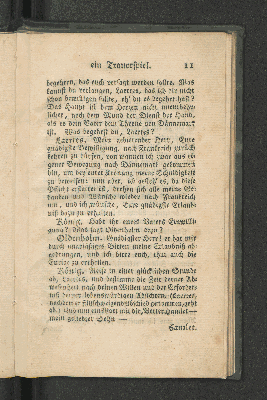 ein Trauerspiel. 11
begehren, das euch versagt werden sollte. Was
kannst du verlangen, Laertes, das ich dir nicht
schon bewilligen sollte, eh' du es begehrt hast?
Das Haupt ist dem Herzen nicht unentbehr-
licher, noch dem Mund der Dienst der Hand,
als es dein Vater dem Throne von Dännemark
ist. Was begehrst du, Laertes?
Laertes. Mein gebietender Herr, Eure
gnädigste Bewilligung, nach Frankreich zurück
kehren zu dürfen, von wannen ich zwar aus ei-
gener Bewegung nach Dännemark gekommen
bin, um bey der Krönung meine Schuldigkeit
zu beweisen: nun aber, ich gesteh' es, da diese
Pflicht erstattet ist, drehen sich alle meine Ge-
danken und Wünsche wieder nach Frankreich
um, und ich wünsche, Eure gnädigste Erlaub-
niß dazu zu erhalten.
König. Habt ihr eures Vaters Einwilli-
gung? Was sagt Oldenholm dazu?
Oldenholm. Gnädigster Herr! er hat mir
durch unablässiges Bitten meine Erlaubniß ab-
gedrungen, und ich bitte euch, ihm auch die
Eurige zu ertheilen.
König. Reise in einer glücklichen Stunde
ab, Laertes, und bestimme die Zeit deiner Ab-
wesenheit nach deinem Willen und der Erforder-
niß deiner lobenswürdigen Absichten. (Laertes,
nachdem er stillschweigend sich gebückt, geht
ab.) Und nun ein Wort mit dir, Vetter Hamlet —
mein geliebter Sohn —
Hamlet.